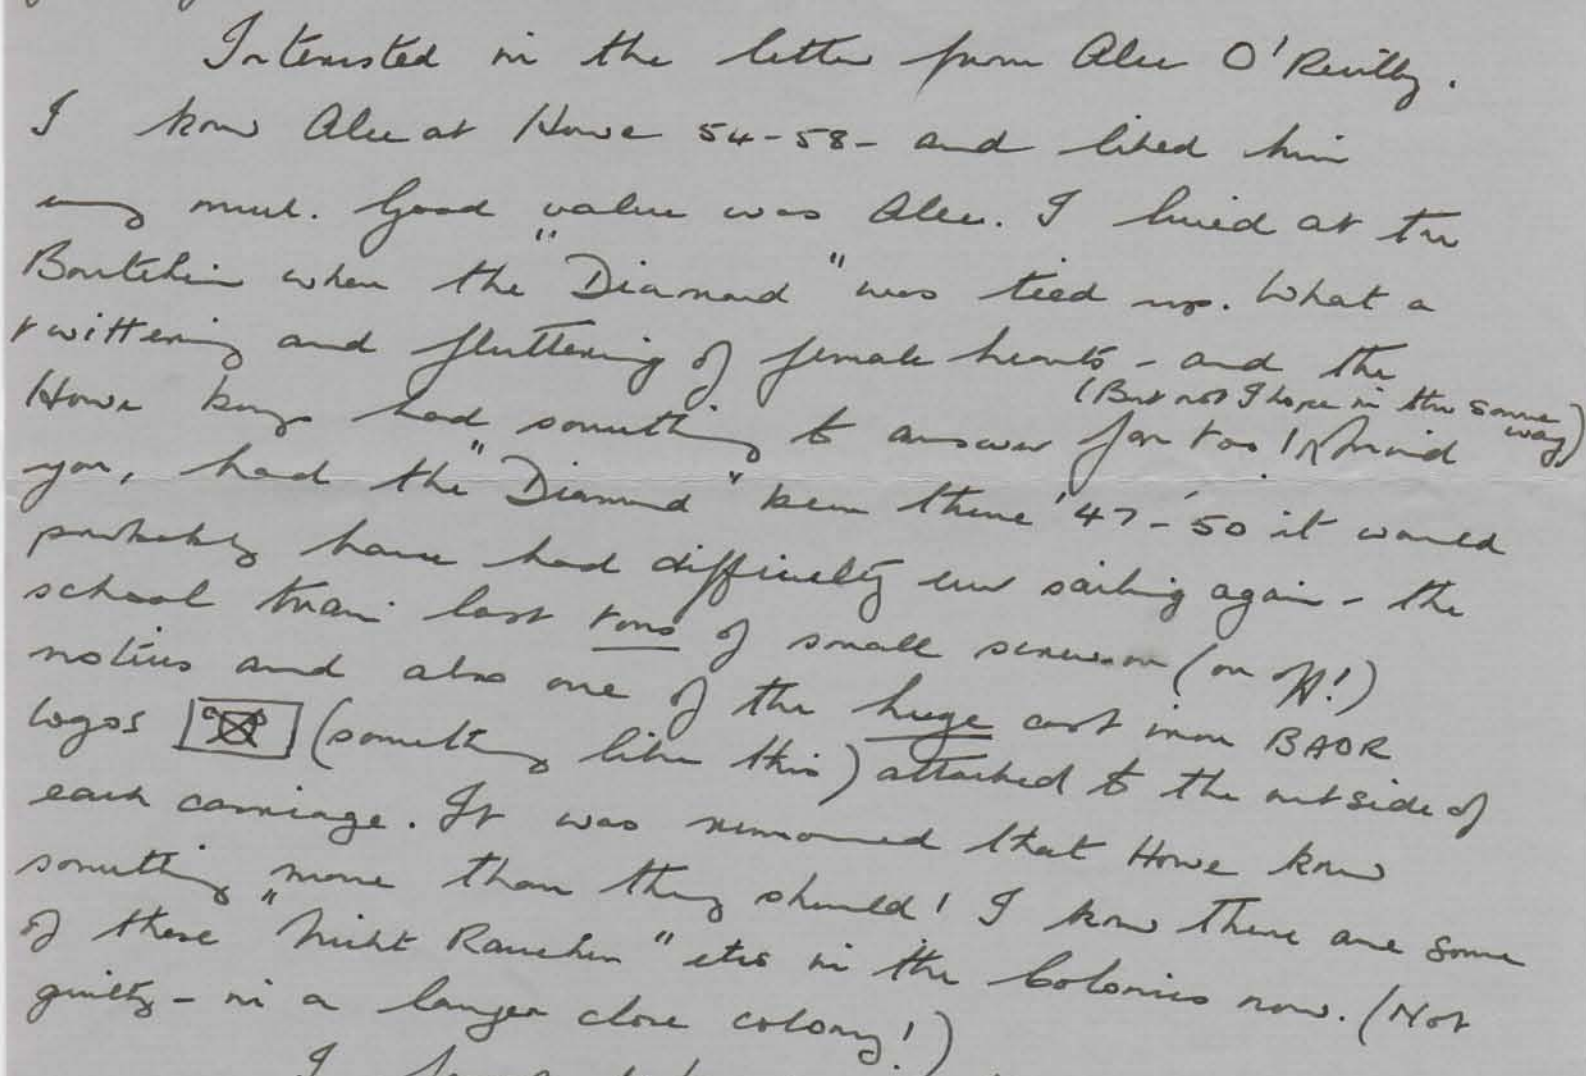 Interested in the letter from Alec O'Reilly.
I knew Alec at Howe 54-58- and liked him
very much. Good value was Alec. I lived at the
when the "Diamond" was tied up. What a
twittering and fluttering of female hearts - and the
(But not I hope in the same way)
Howe boys had something to answer for too! Mind
you, had the "Diamond" been there '47-'50 it would
probably have had difficulty ever sailing again - the
school train lost tons of small screw-on (or off!)
notices and also one of the huge cast iron BAOR
logos (something like this) attached to the outside of
each carriage. It was rumoured that Howe knew
something more than they should! I know there are some
of these "Nicht Rauchen" etcs in the Colonies now. (Not
guilty - in a larger close colony!)